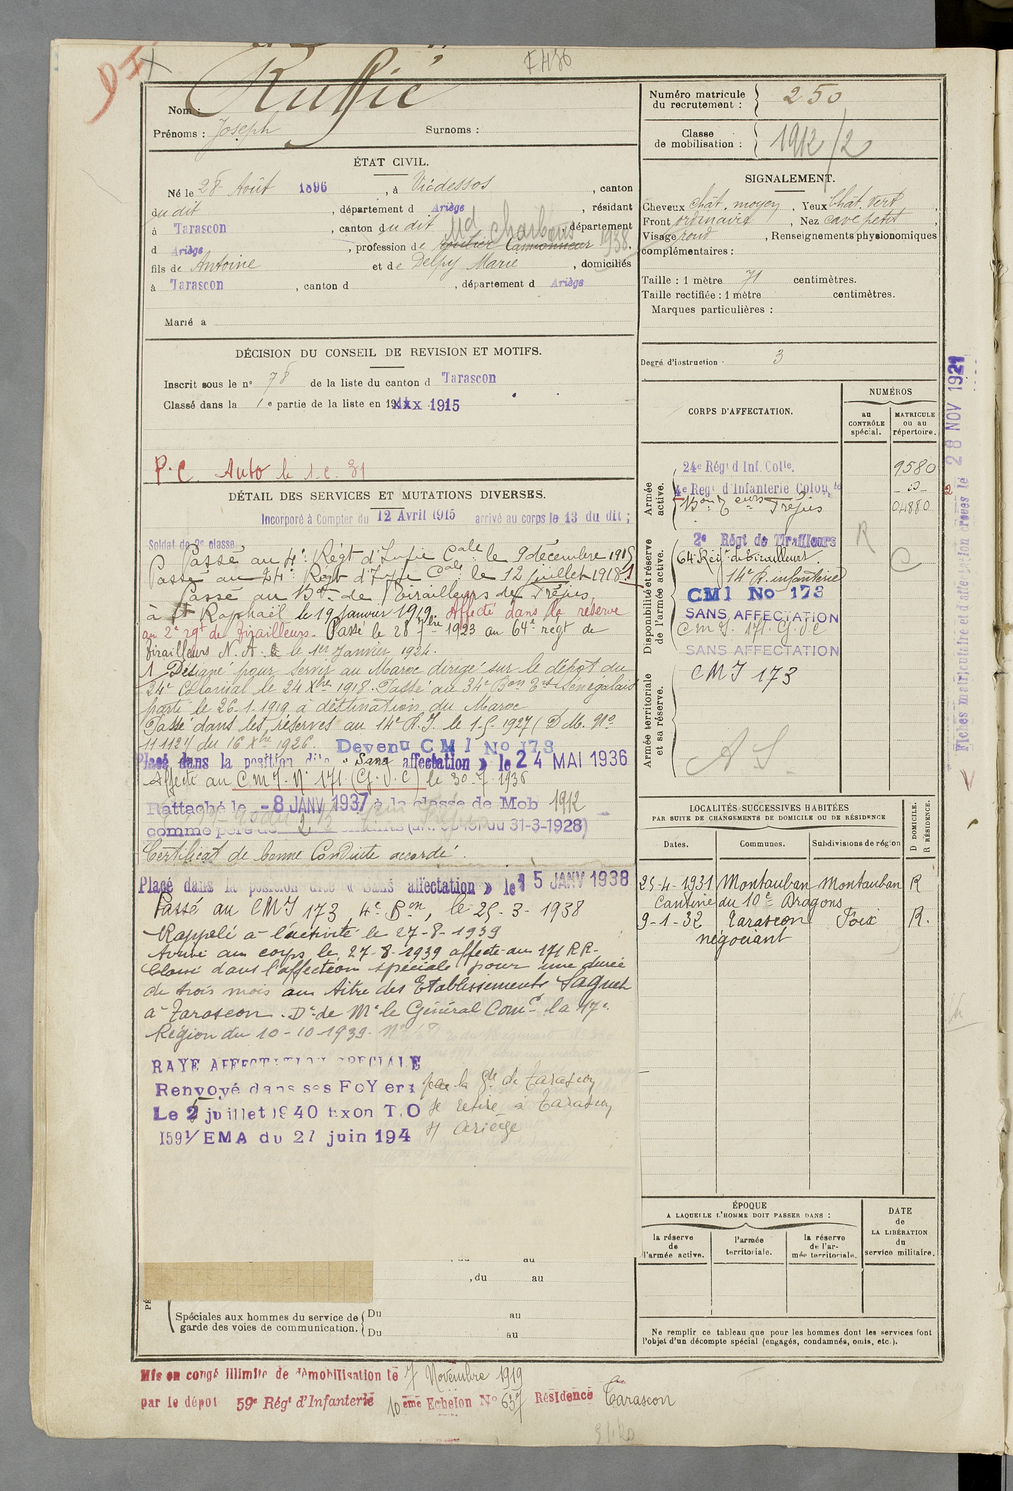 Ruffié
Nom :
Prénoms : Joseph
Surnoms :
Numéro matricule du recrutement : 250
Classe de mobilisation : 1912/2
ÉTAT CIVIL.
Né le 28 Août 1896, à Vicdessos, canton
du dit, département d Ariège, résidant
à Tarascon, canton du dit, département
d Ariège, profession de Md charbons Camionneur 1938.
fils de Antoine et de Delpy Marie, domiciliés
à Tarascon, canton d , département d Ariège
Marié à
SIGNALEMENT.
Cheveux chât. moyen. Yeux Chât. vert,
Front ordinaire. Nez cave petit,
Visage rond, Renseignements physionomiques
complémentaires :
Taille : 1 mètre 71 centimètres.
Taille rectifiée : 1 mètre centimètres.
Marques particulières :
Degré d'instruction : 3
DÉCISION DU CONSEIL DE REVISION ET MOTIFS.
Inscrit sous le n° 78 de la liste du canton d Tarascon
Classé dans la 1e partie de la liste en 19 xxx 1915
P.C Auto le
DÉTAIL DES SERVICES ET MUTATIONS DIVERSES.
Incorporé à Compter du 12 Avril 1915 arrivé au corps le 13 du dit ;
Soldat de 2e classe
Passé au 4e Régt d'Infie Cale le 9 décembre 1915
Passé au 24e Régt d'Infie Cale le 12 juillet 1918
Passé au Bon de Tirailleurs de Fréjus
à St Raphaël le 19 Janvier 1919. Affecté dans la réserve
au 2e rgt de Tirailleurs. Passé le 28 1923 au 64e régt de
Tirailleurs N.A. le 1er Janvier 1924.
1 Désigné pour servir au Maroc dirigé sur le dépôt du
24e Colonial le 24 Xbre 1918. Passé au 34e Bon Trs Sénégalais
parti le 26.1.1919 à destination du Maroc
Passé dans les réserves au 14e R.I. le 1-5-1927 (D.M. No
11112 du 16 Xbre 1926. Devenu CMI No 173
Placé dans la position dite « Sans affectation » le 24 MAI 1936
Affecté au C.M.I. No 171 (G.V.C) le 30-7 1936
Rattaché le -8 JANV 1937 à la classe de Mob 1912
comme père de 2 enfants du 31-3-1928)
Certificat de bonne Conduite accordé.
Placé dans la position dite « Sans affectation » le 15 JANV 1938
Passé au CMI 173, 4e Bon, le 25-3-1938
Rappelé à l'activité le 27-8-1939
Arrivé au corps le 27-8-1939 affecté au 171 R.R.
Classé dans l'affection spéciale pour une durée
de trois mois au titre des Etablissements Saguet
à Tarascon. Dn de Mr le Général Comt la 17e
Région du 10-10-1939.
RAYE AFFECTATION SPECIALE
Renvoyé dans ses FoYers par la Gie de Tarascon
Le 2 juillet 1940 Exon T.O se retire à Tarascon
1591/EMA du 27 juin 194 Ariège
, du au
Spéciales aux hommes du service de garde des voies de communication.
Du au
Du au
CORPS D'AFFECTATION.
NUMÉROS
au CONTRÔLE spécial.
MATRICULE ou au répertoire.
Armée active.
24e Régt d'Inf. Colle. 9580
4e Regt d'Infanterie Colon
Bon Teurs Fréjus 04880
Disponibilité et réserve de l'armée active.
2e Régt de Tirailleurs R
64 Régt de tirailleurs C
14e R. infanterie
CMI No 173
SANS AFFECTATION
C M I. 171. G.V.C
SANS AFFECTATION
Armée territoriale et sa réserve.
CMI 173
A S
LOCALITÉS SUCCESSIVES HABITÉES
PAR SUITE DE CHANGEMENTS DE DOMICILE OU DE RÉSIDENCE
Dates. Communes. Subdivisions de région
D DOMICILE. R RÉSIDENCE.
25-4-1931 Montauban Montauban R
Cantine du 10e Dragons
9-1-32 Tarascon Foix R.
négociant
ÉPOQUE
A LAQUELLE L'HOMME DOIT PASSER DANS :
la réserve de l'armée active.
l'armée territoriale.
la réserve de l'armée territoriale.
DATE de LA LIBÉRATION du service militaire.
Ne remplir ce tableau que pour les hommes dont les services font
l'objet d'un décompte spécial (engagés, condamnés, omis, etc.).
Mis en congé illimité de démobilisation le 7 Novembre 1919
par le dépôt 59e Régt d'Infanterie 10ème Echelon No 637 Résidence Tarascon
Fiches matriculaire et d'affectation créées le 28 NOV 1921